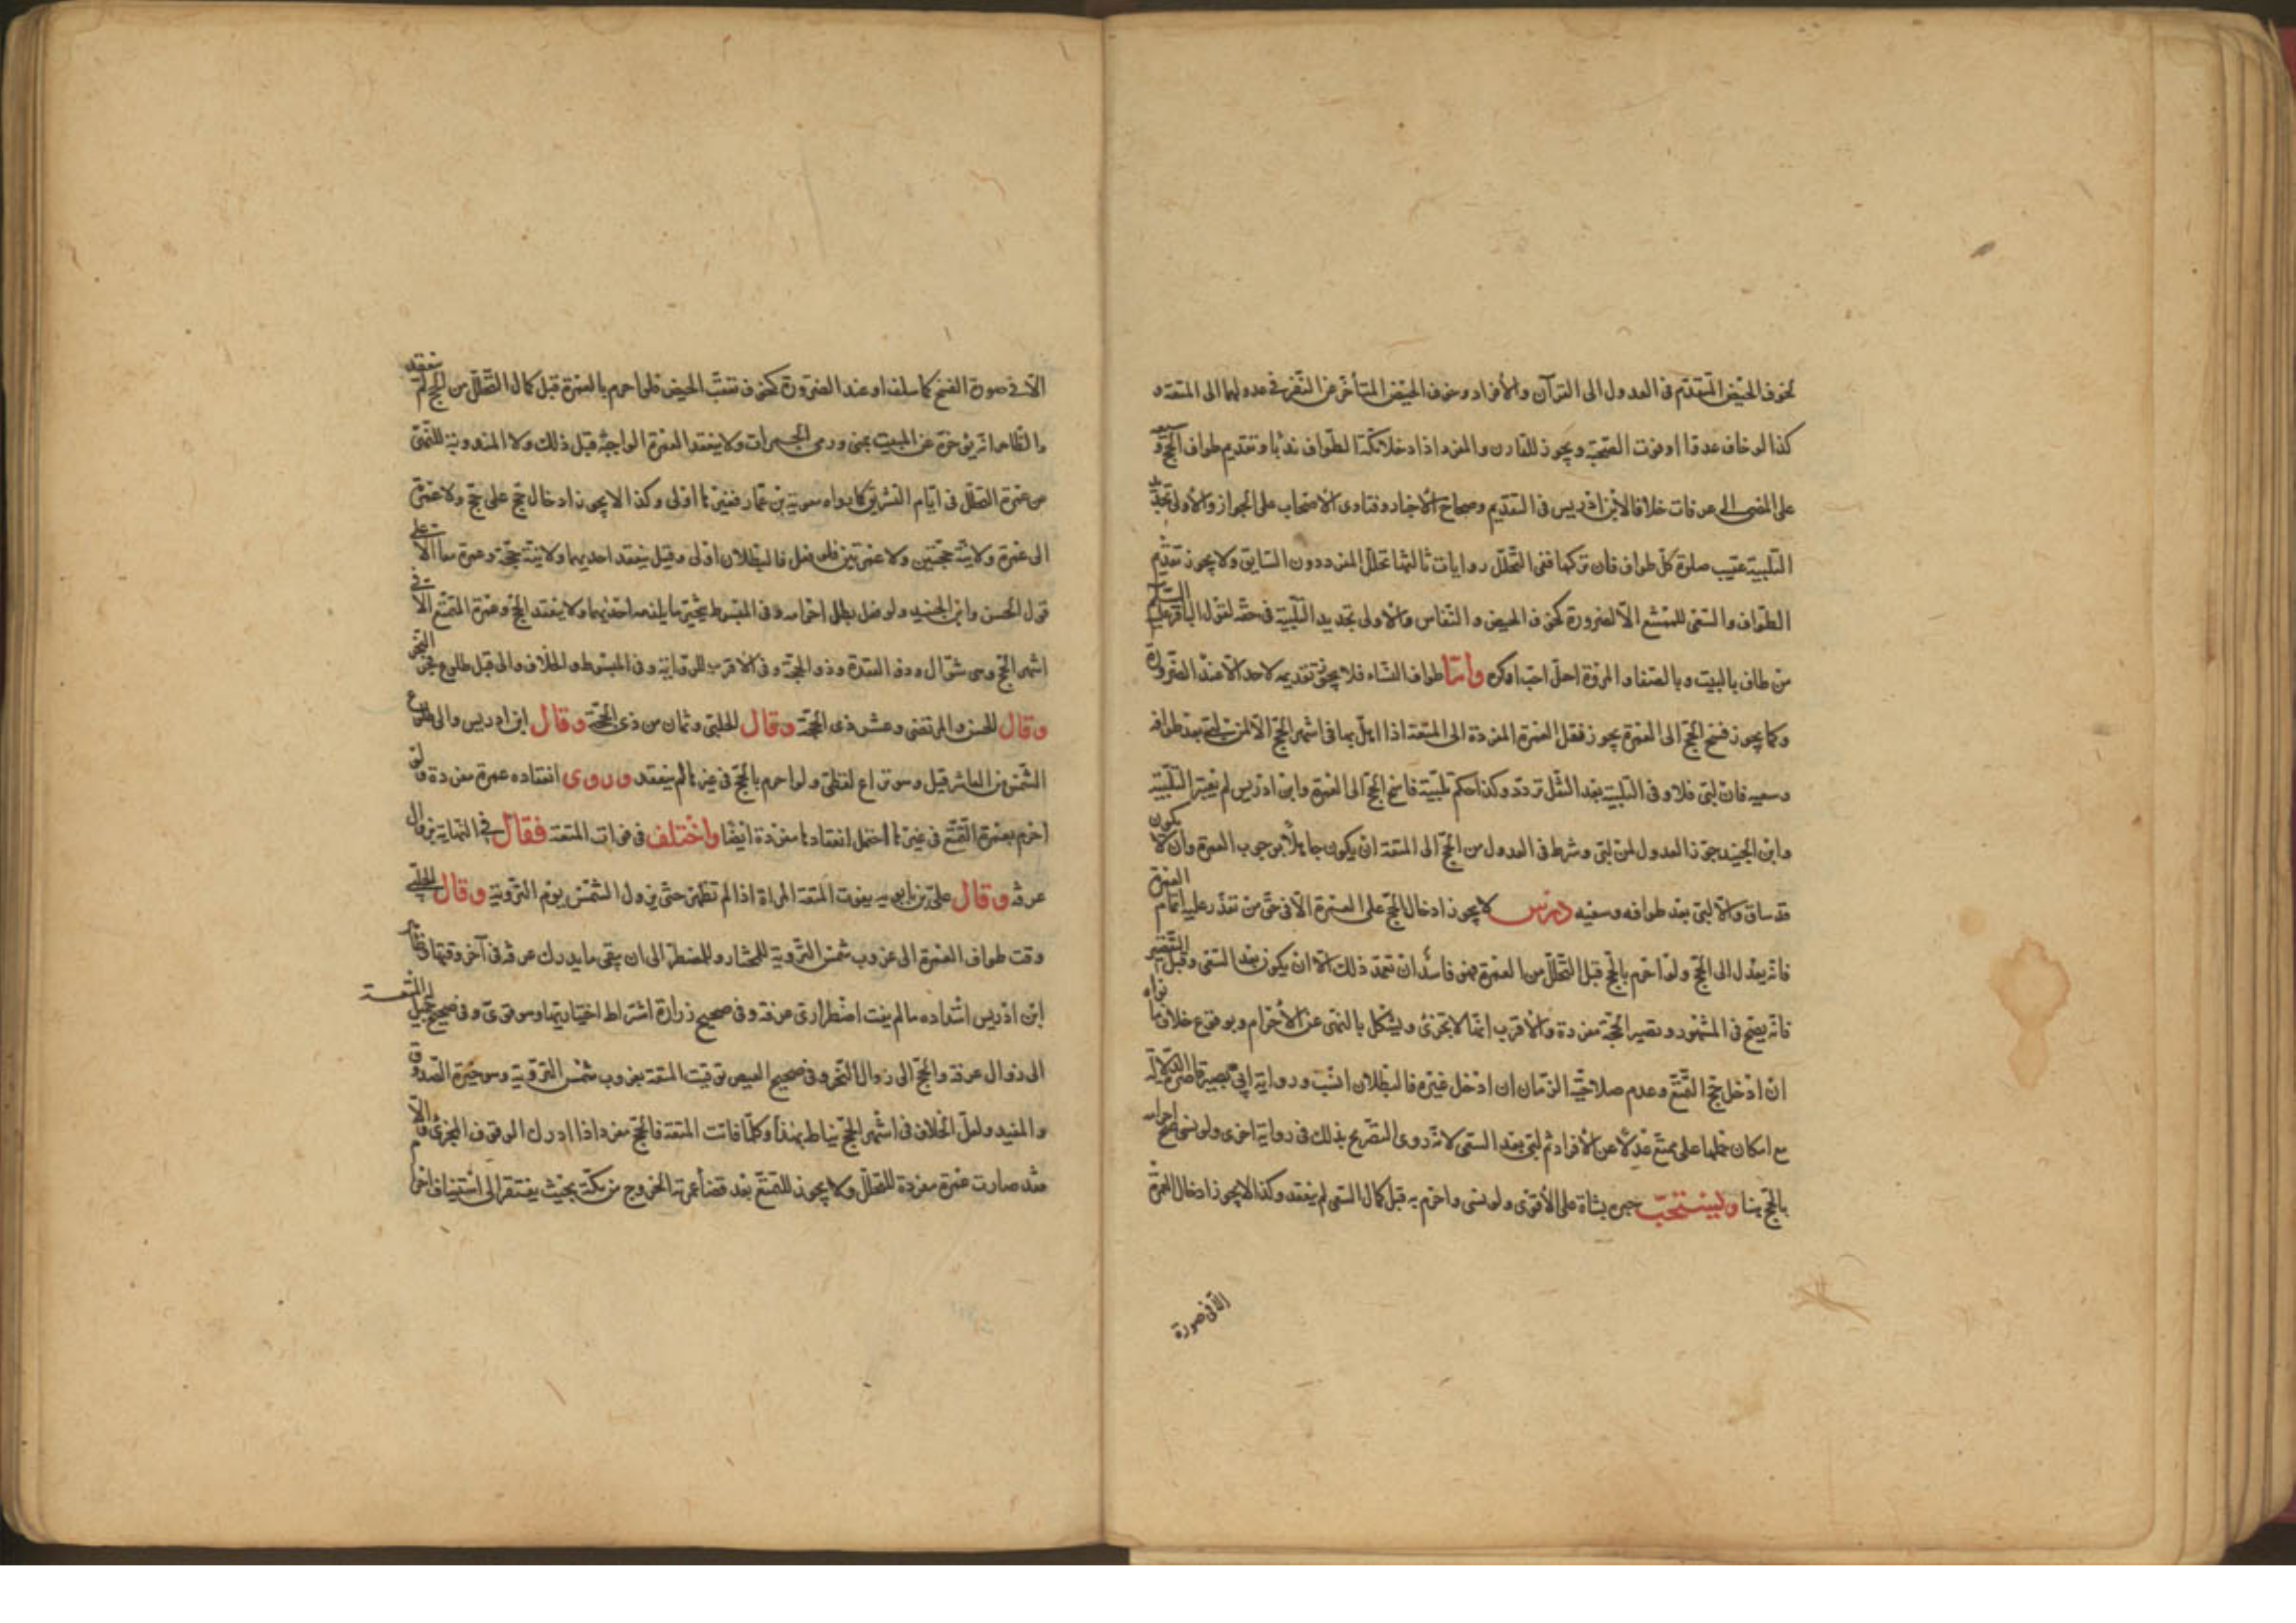 كخوف الحيض المتقدم فى العدول الى القرآن والأفراد وخوف الحيض المتأخر عن النفر فى عدولها الى المتعة و
كذا لو خاف عدوا او فوت الصحبة ويجوز للقارن والمفرد اذا دخلا مكة الطواف ندبا وتقديم طواف الحج وسعيه
على المضى الى عرفات خلافا لابن ادريس فى التقديم وصحاح الأخبار وفتاوى الأصحاب على الجواز والأولى تجديد
التلبية عقيب صلوة كل طواف فان تركها ففى التحلل روايات ثالثها تحلل المفرد دون السايق ولا يجوز تقديم
الطواف والسعى للمتمتع الا لضرورة كخوف الحيض والنفاس والأولى تجديد التلبية فى حقه لقول الباقر عليه السلام
من طاف بالبيت وبالصفا والمروة احل احب او كره واما طواف النساء فلا يجوز تقديمه لاحد الا عند الضرورة
وكما يجوز فسخ الحج الى العمرة يجوز نقل العمرة المفردة الى المتعة اذا اهل بها فى اشهر الحج الا لمن لبى بعد طوافه
وسعيه فان لبى فلا وفى التلبية بعد النقل تردد وكذا حكم تلبية فاسخ الحج الى العمرة وابن ادريس لم يعتبر التلبية
وابن الجنيد جوز العدول لمن لبى وشرط فى العدول من الحج الى المتعة ان يكون جاهلا بوجوب العمرة وان لا يكون
قد ساق والا لبى بعد طوافه وسعيه درس لا يجوز ادخال الحج على العمرة الا فى حق من تعذر عليه اتمام العمرة
فانه يعدل الى الحج ولو احرم بالحج قبل التحلل من العمرة فهو فاسد ان تعمد ذلك الا ان يكون بعد السعى وقبل التقصير
فانه يصح فى المشهور ويصير الحجة مفردة والأقرب انها لا تجزئ ويشكل بالنهى عن الأحرام وبوقوع خلاف ما نواه
ان ادخل حج التمتع وعدم صلاحية الزمان ان ادخل غيره فالبطلان انسب ورواية ابى بصير قاصرة الدلالة
مع امكان حملها على متمتع عدل عن الأفراد ثم لبى بعد السعى لانه روى التصريح بذلك فى رواية اخرى ولو نسى صح احرامه
بالحج هنا ويستحب جبره بشاة على الأقوى ولو نسى واحرم به قبل كمال السعى لم ينعقد وكذا لا يجوز ادخال العمرة
الا فى صورة
الا فى صورة الفسخ كما سلف او عند الضرورة كخوف تعقب الحيض فلو احرم بالعمرة قبل كمال التحلل من الحج لم ينعقد
والظاهر انه يؤخره عن المبيت بمنى ورمى الجمرات ولا ينعقد العمرة الواجبة قبل ذلك ولا المندوبة للنهى
عن عمرة التحلل فى ايام التشريق كما رواه معوية بن عمار فغيرها اولى وكذا لا يجوز ادخال حج على حج ولا عمرة
الى عمرة ولا نية حجتين ولا عمرتين فلو فعل فالبطلان اولى وقيل ينعقد احديهما ولا نية حجة وعمرة معا الا على
قول الحسن وابن الجنيد ولو فعل بطل احرامه وفى المبسوط يتخير ما يلزمه احديهما ولا ينعقد الحج وعمرة التمتع الا فى
اشهر الحج وهى شوال وذو القعدة وذو الحجة وفى الأقرب للرواية وفى المبسوط والخلاف والى قبل طلوع فجر النحر
وقال الحسن والمرتضى وعشر ذى الحجة وقال الحلبى وثمان من ذى الحجة وقال ابن ادريس والى طلوع
الشمس من العاشر قيل وهو نزاع لفظى ولو احرم بالحج فى غيرها لم ينعقد وروى انعقاده عمرة مفردة ولو
احرم بعمرة التمتع فى غيرها احتمل انعقادها مفردة ايضا واختلف فى فوات المتعة فقال فى النهاية بزوال
عرفة وقال على بن بابويه يفوت المتعة المراة اذا لم تطهر حتى يزول الشمس يوم التروية وقال الحلبى
وقت طواف العمرة الى غروب شمس التروية للمختار وللمضطر الى ان يبقى ما يدرك عرفة فى آخر وقتها وظاهر
ابن ادريس امتداده ما لم يفت اضطرارى عرفة وفى صحيح زرارة اشتراط اختياريها وهو قوى وفى صحيح جميل له المتعة
الى زوال عرفة والحج الى زوال النحر وفى صحيح العيص توقيت المتعة بغروب شمس التروية وهو خيرة الصدوق
والمفيد ولعل الخلاف فى اشهر الحج يناط بهذا وكلما فاتت المتعة فالحج مفردا اذا ادرك الوقوف المجزى والا
فقد صارت عمرة مفردة للتحلل ولا يجوز للمتمتع بعد قضاء عمرته الخروج من مكة بحيث يفتقر الى استيناف احرام